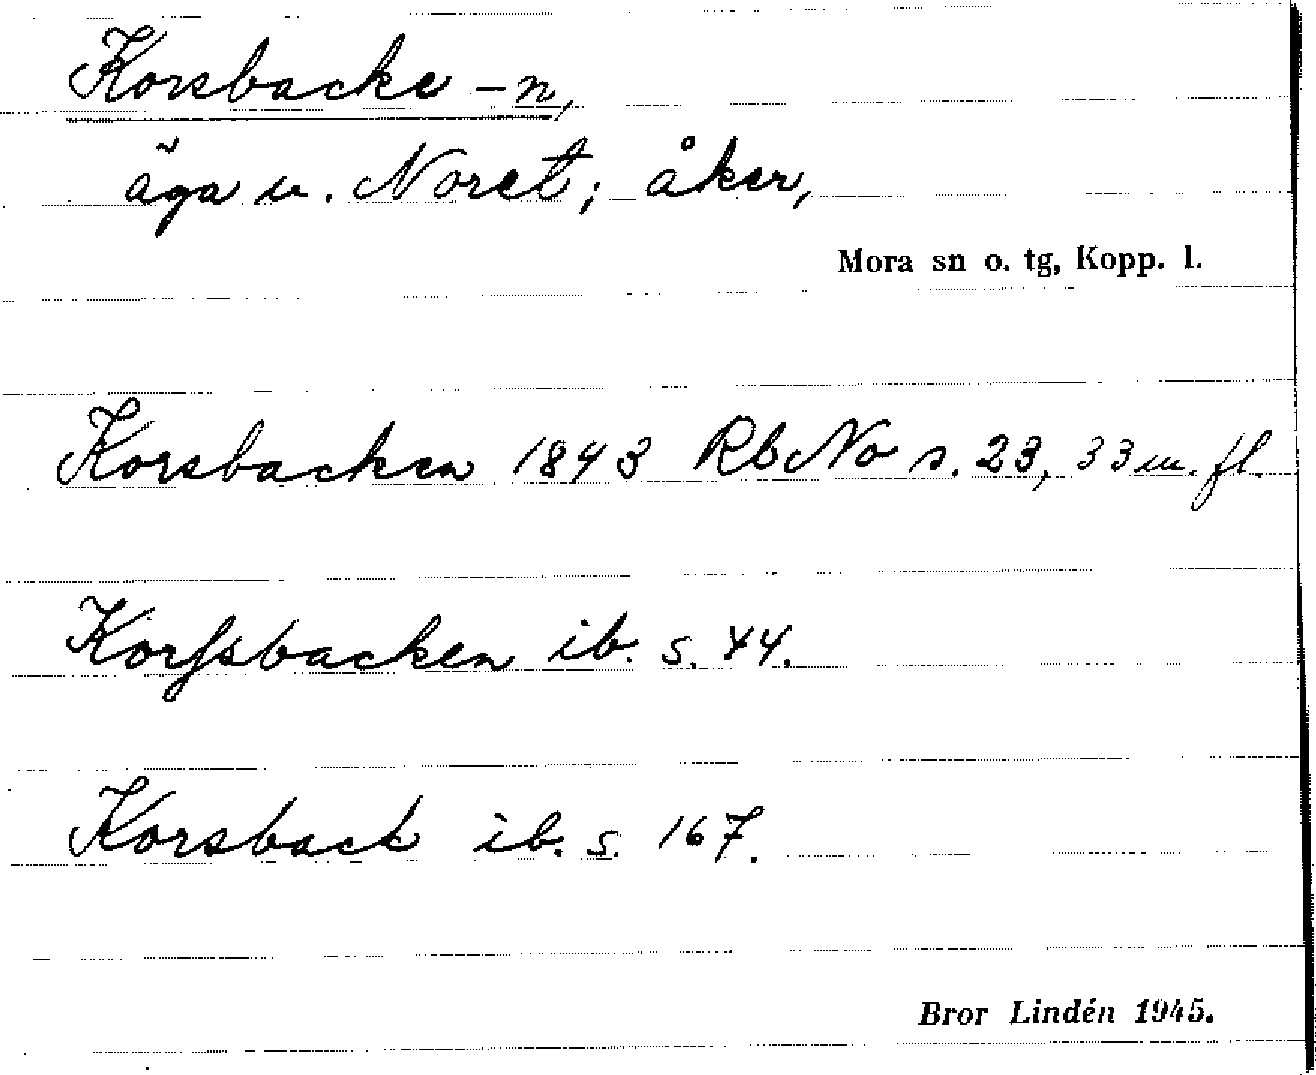 Korsbacke -n,
äga u. Noret; åker,
Mora sn o. tg, Kopp. l.
Korsbacken 1843 Rb No s. 23, 33 m. fl.
Korſsbacken ib. s. 44.
Korsback ib. s. 167.
Bror Lindén 1945.